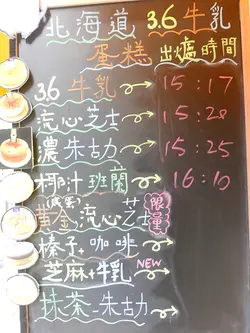 北海道 3.6牛乳
蛋糕 出爐時間
3.6 牛乳 → 15:17
流心芝士 → 15:28
濃朱古力 → 15:25
椰汁班蘭 → 16:10
(低蛋)
黃金流心芝士 → 限量
榛子+咖啡 →
芝麻+牛乳 NEW →
抹茶-朱古力 →